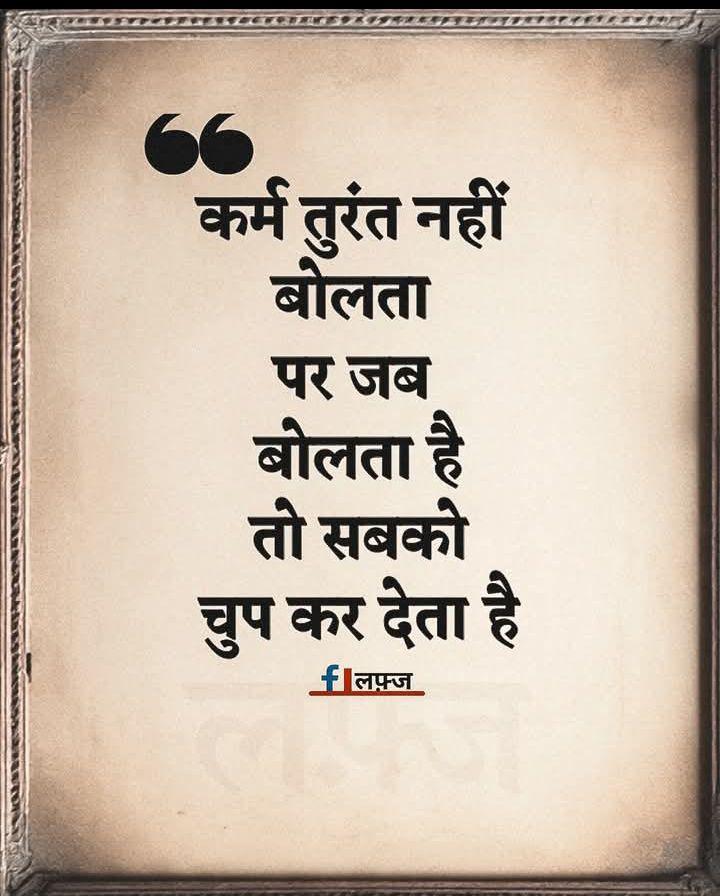 ❝
कर्म तुरंत नहीं
बोलता
पर जब
बोलता है
तो सबको
चुप कर देता है
f लफ़्ज
लफ़्ज